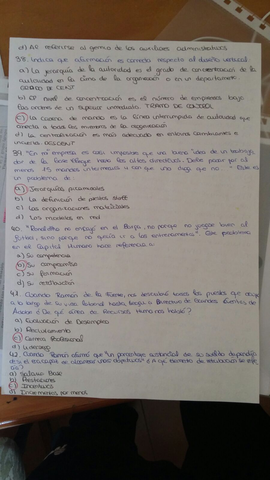 d) Al referirse al genio de los auxiliares administrativos
38. Indica que afirmación es correcta respecto al diseño vertical
a) La jerarquía de la autoridad es el grado de concentración de la
autoridad en la cima de la organización o en un departamento.
GRADO DE CENT
b) El nivel de concentración es el número de empresas bajo
las órdenes de un superior inmediato TRAMO DE CONTROL
c) La cadena de mando es la línea ininterrumpida de autoridad que
conecta a todos los miembros de la organización
d) La centralización es más adecuada en entornos cambiantes e
inciertos DESCENT
39. "En mi empresa es casi imposible que una buena idea de un
dor de la base llegue hasta los altos directivos. Debe pasar por al
menos 15 mandos intermedios a los que uno diga que no." Este es
un problema de
a) Jerarquías piramidales
b) La definición de puestos staff
c) Las organizaciones matriciales
d) Los modelos en red
40. no porque no jueguen bien al
fútbol, sino porque no a los entrenamientos". Que problema
en el Capital Humano hace referencia
a) Su competencia
b) Su compromiso
c) Su formación
d) Su motivación
41. Cuando Ramón de la Torre, nos describió todos los puestos que ocupó
a lo largo de su vida laboral hasta llegar a
¿De qué área de Recursos Humanos habla?
a) Evaluación de Desempeño
b) Reclutamiento
c) Carrera Profesional
d) Liderazgo
42. Cuando Ramón afirmó que "un porcentaje sustancial de su sueldo dependía
de objetivos" ¿A qué elemento de retribución se
a) Salario Base
b) Prestaciones
c) Incentivos
d) Incrementos por mérito